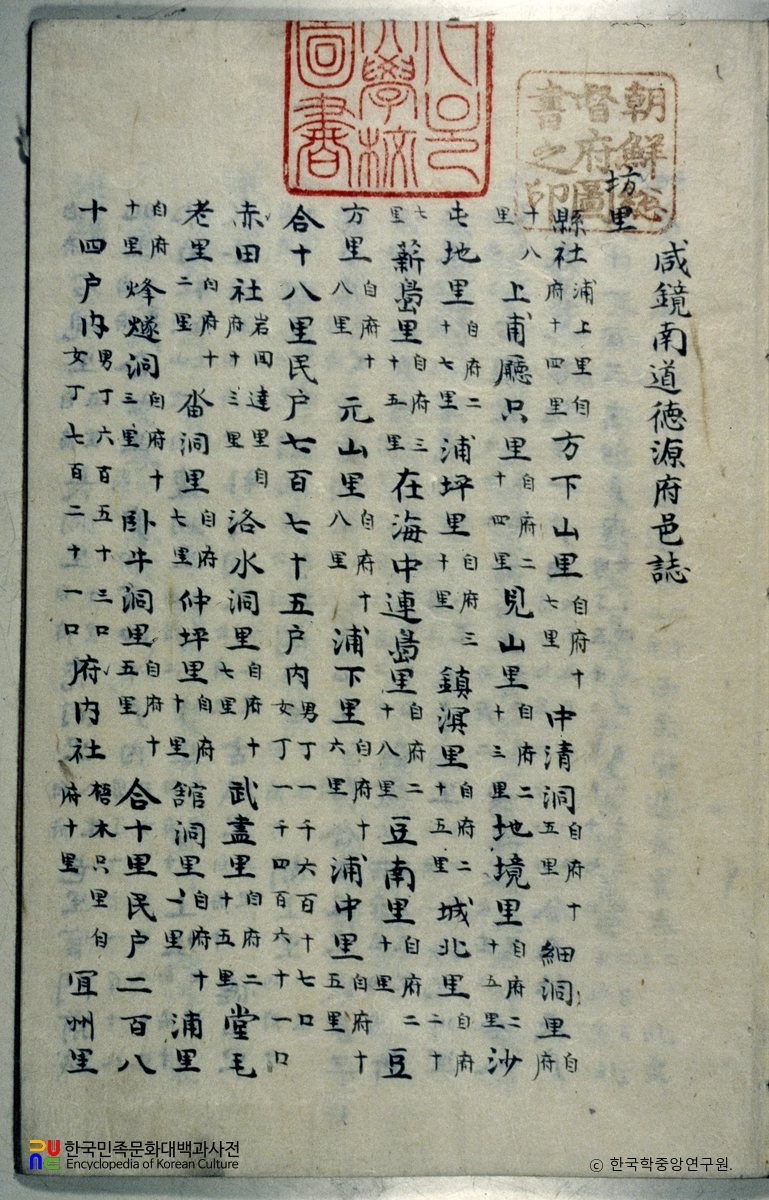 朝鮮總
督府圖
書之印
大學校
圖書
咸鏡南道德源府邑誌
坊里
縣社浦上里自府十四里方下山里自府十七里中清洞自府十五里細洞里自府
十八里上甫廳只里自府二十四里見山里自府二十三里地境里自府二十五里沙
屯地里自府二十七里浦坪里自府三十里鎮溟里自府二十五里城北里自府二十
七里薪島里自府三十五里在海中連島里自府二十八里豆南里自府二十里豆
方里自府十八里元山里自府十八里浦下里自府十六里浦中里自府十五里
合十八里民户七百七十五户内男丁一千六百十七口女丁一千四百六十一口
赤田社岩囬達里自府十三里洛水洞里自府十七里武盡里自府二十五里堂毛
老里自府十二里沓洞里自府十七里仲坪里自府十里舘洞里自府十一里浦里
自府十里烽燧洞自府十三里卧牛洞里自府十五里合十里民户二百八
十四户内男丁六百五十三口女丁七百二十一口府内社梧木只里自府十里宜州里
한국민족문화대백과사전
Encyclopedia of Korean Culture
© 한국학중앙연구원.